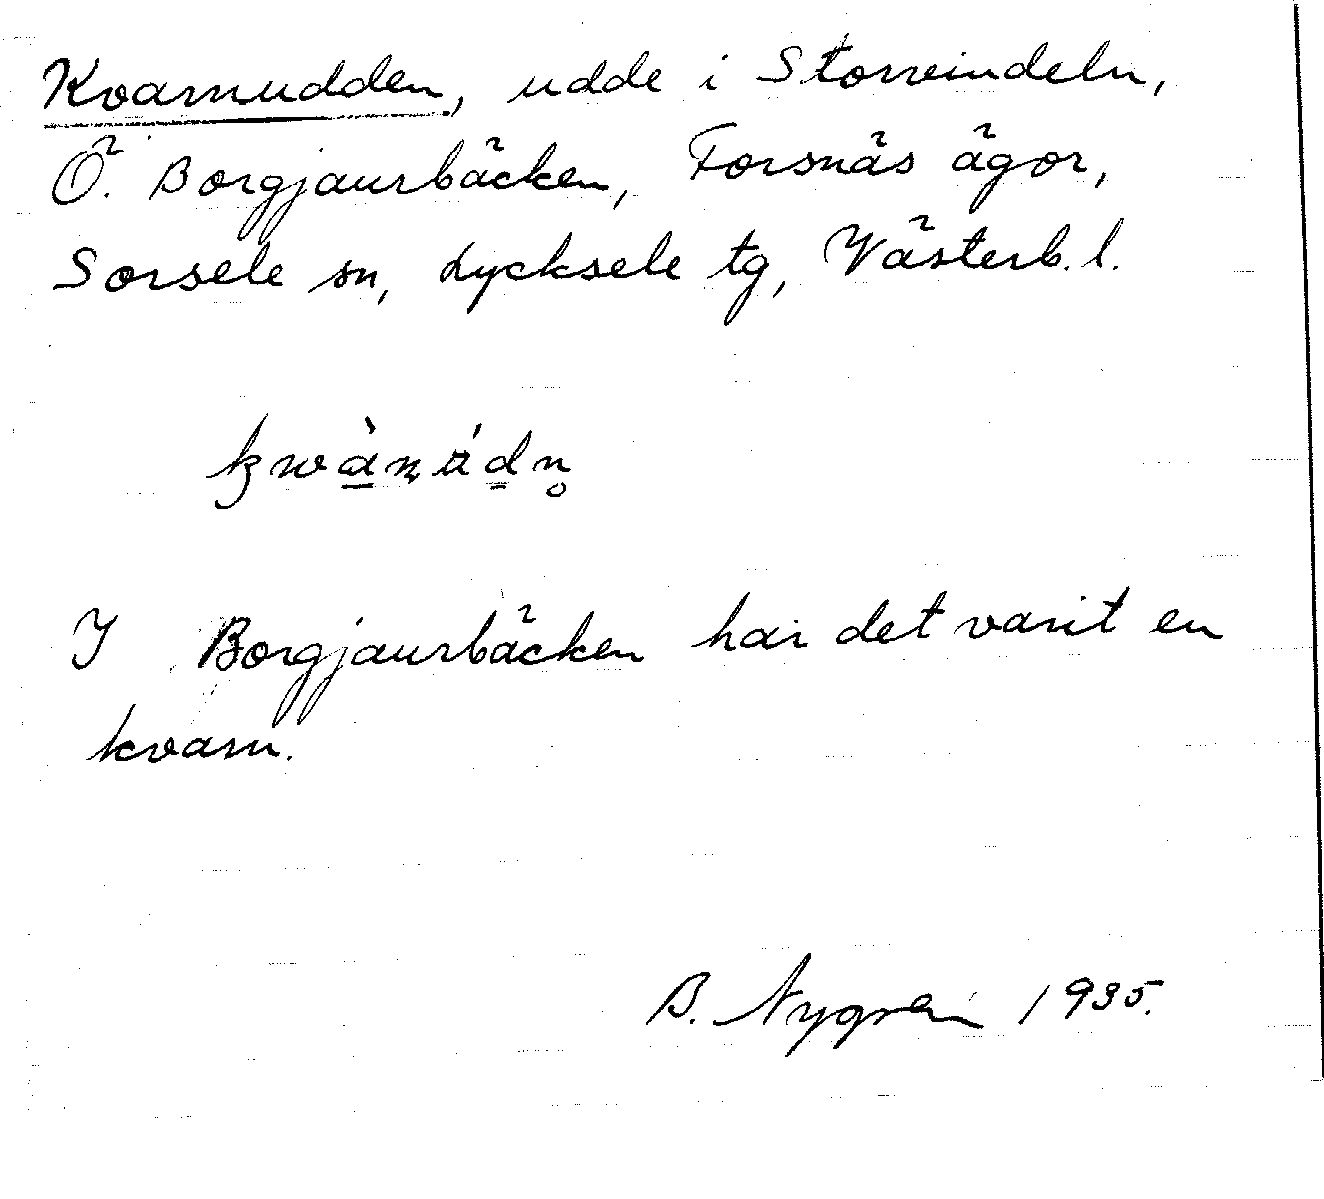 Kvarnudden, udde i Storvindeln,
Ö. Borgjaurbäcken, Forsnäs ägor,
Sorsele sn, Lycksele tg, Västerb. l.
I Borgjaurbäcken har det varit en
kvarn.
B. Nygren 1935.